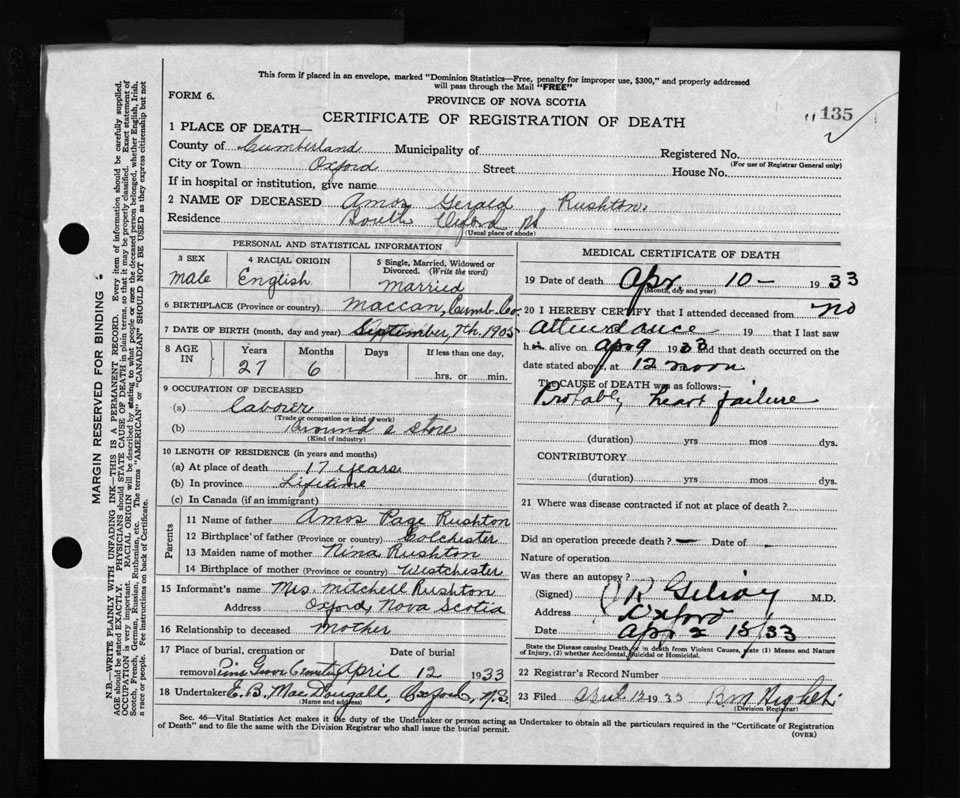 This form if placed in an envelope, marked "Dominion Statistics—Free, penalty for improper use, $300," and properly addressed
will pass through the Mail "FREE"
FORM 6.
PROVINCE OF NOVA SCOTIA
CERTIFICATE OF REGISTRATION OF DEATH
135
1 PLACE OF DEATH—
County of Cumberland Municipality of Registered No.
(For use of Registrar General only)
City or Town Oxford Street House No.
If in hospital or institution, give name
2 NAME OF DECEASED Amos Gerald Rushton.
Residence South Oxford NS
(Usual place of abode)
PERSONAL AND STATISTICAL INFORMATION
3 SEX 4 RACIAL ORIGIN 5 Single, Married, Widowed or
Divorced. (Write the word)
male English married
6 BIRTHPLACE (Province or country) Maccan, Cumb. Co.
7 DATE OF BIRTH (month, day and year) September, 7th. 1905
8 AGE IN Years Months Days If less than one day,
27 6 hrs. or min.
9 OCCUPATION OF DECEASED
(a) laborer
(Trade or occupation or kind of work)
(b) Around a store
(Kind of industry)
10 LENGTH OF RESIDENCE (in years and months)
(a) At place of death 17 years
(b) In province Lifetime
(c) In Canada (if an immigrant)
Parents
11 Name of father Amos Page Rushton
12 Birthplace of father (Province or country) Colchester
13 Maiden name of mother Nina Rushton
14 Birthplace of mother (Province or country) Westchester
15 Informant's name Mrs. Mitchell Rushton
Address Oxford, Nova Scotia
16 Relationship to deceased mother
17 Place of burial, cremation or Date of burial
removal Pine Grove Cemetery April 12 1933
18 Undertaker E. B. MacDougall, Oxford, N.S.
(Name and address)
MEDICAL CERTIFICATE OF DEATH
19 Date of death Apr. 10 - 1933
(Month, day and year)
20 I HEREBY CERTIFY that I attended deceased from no
attendance 19 that I last saw
h alive on apr 9 1933 and that death occurred on the
date stated above, at 12 noon
The CAUSE OF DEATH was as follows:
Probably heart failure
(duration) yrs mos dys.
CONTRIBUTORY
(duration) yrs mos dys.
21 Where was disease contracted if not at place of death?
Did an operation precede death? — Date of
Nature of operation
Was there an autopsy?
(Signed) M.D.
Address Oxford
Date Apr 15/33
State the Disease causing Death, or in death from Violent Causes, state (1) Means and Nature
of Injury, (2) whether Accidental, Suicidal or Homicidal.
22 Registrar's Record Number
23 Filed April 12 1933
(Division Registrar)
Sec. 46—Vital Statistics Act makes it the duty of the Undertaker or person acting as Undertaker to obtain all the particulars required in the "Certificate of Registration
of Death" and to file the same with the Division Registrar who shall issue the burial permit.
(OVER)
MARGIN RESERVED FOR BINDING
N.B.—WRITE PLAINLY WITH UNFADING INK—THIS IS A PERMANENT RECORD. Every item of information should be carefully supplied.
AGE should be stated EXACTLY. PHYSICIANS should STATE CAUSE OF DEATH in plain terms, so that it may be properly classified. Exact statement of
OCCUPATION is very important. RACIAL ORIGIN will be described by stating to what people or race the deceased person belonged, whether English, Irish,
Scotch, French, German, Russian, Ruthenian, etc. The terms "AMERICAN" or "CANADIAN" SHOULD NOT BE USED as they express citizenship but not
a race or people. Fee instructions on back of Certificate.